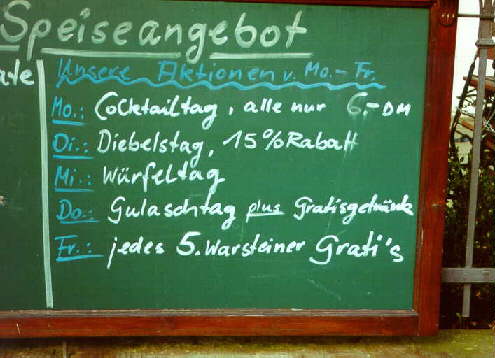 Speiseangebot
Unsere Aktionen v. Mo.- Fr.
Mo.: Cocktailtag, alle nur 6,- DM
Di.: Diebelstag, 15% Rabatt
Mi.: Würfeltag
Do.: Gulaschtag plus Gratisgetränk
Fr.: jedes 5. Warsteiner Grati's